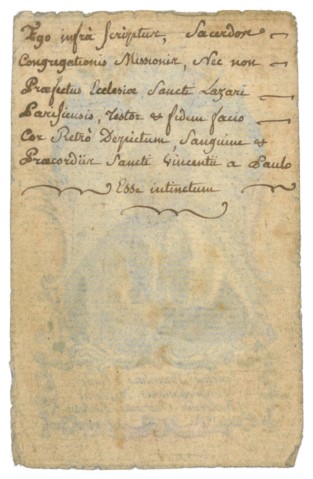 Ego infrà scriptus, Sacerdos
Congregationis Missionis, Nec non
Præfectus Ecclesiæ Sancti Lazari
Parisiensis, Testor et fidem facio
Cor Retrò Depictum, Sanguine et
Præcordiis Sancti Vincentii a Paulo
Esse intinctum